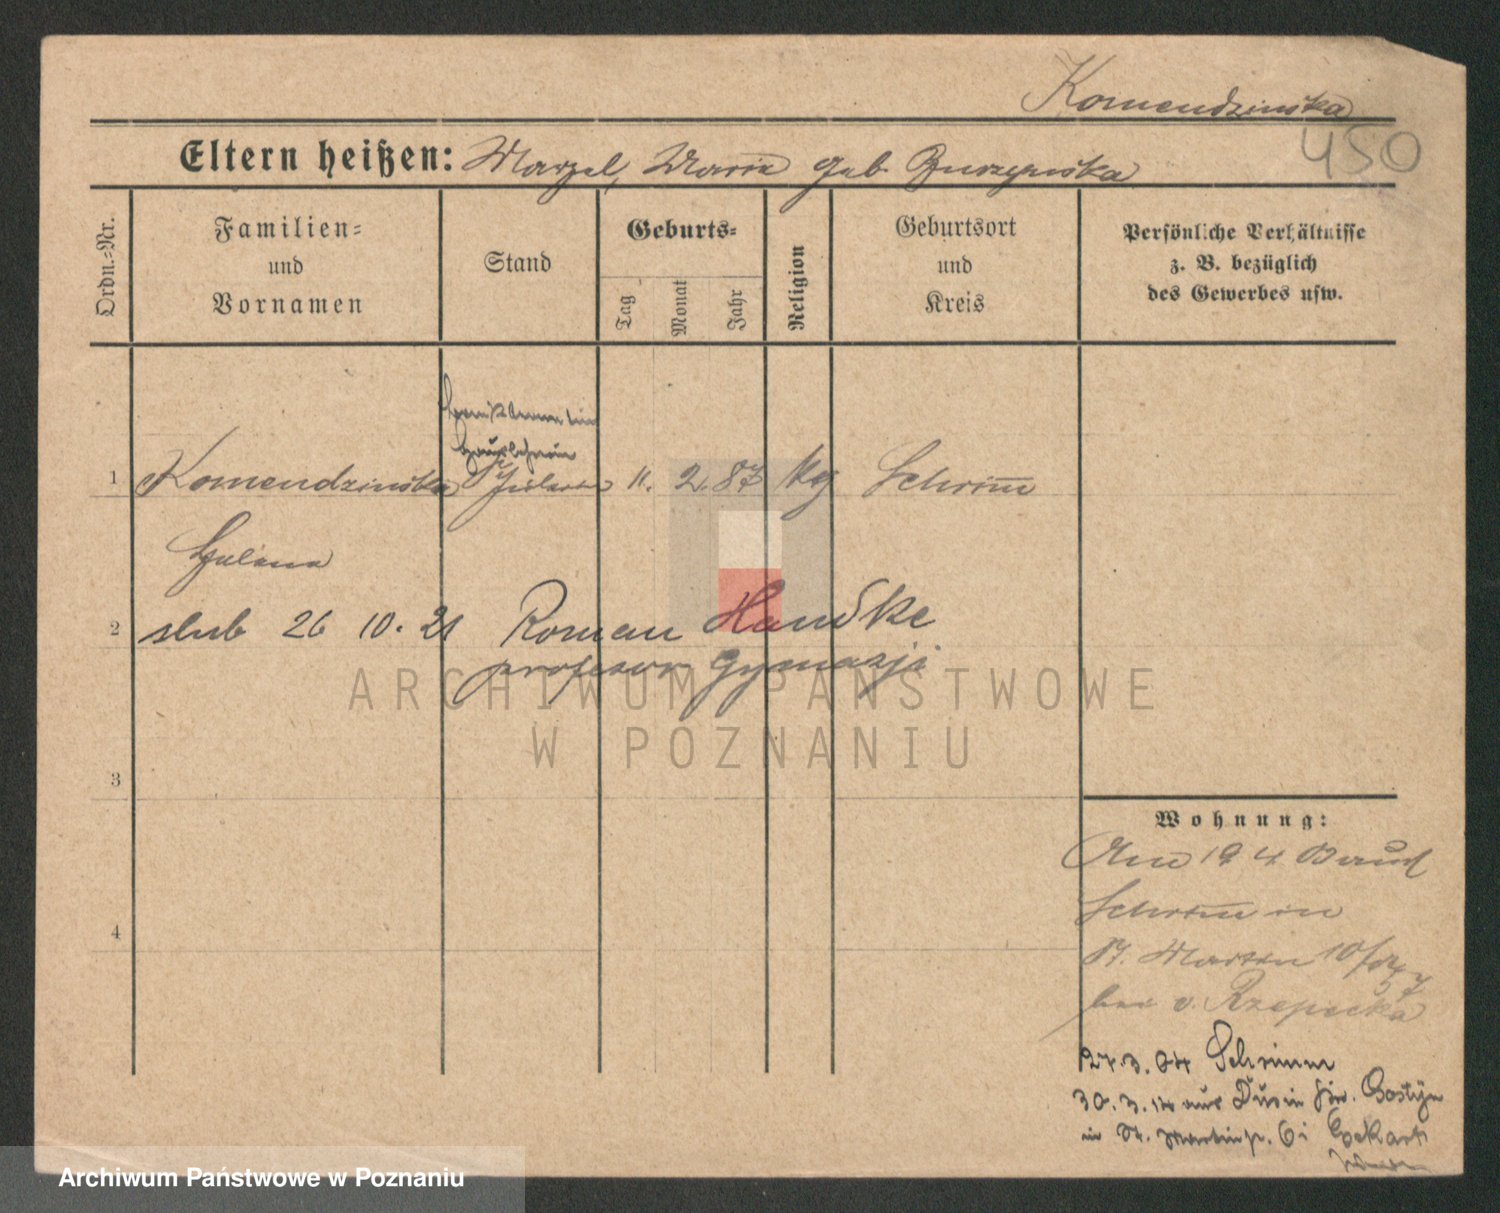 Komendzinska
450
Eltern heißen: Marzel, Maria geb.
Ordn.-Nr.
Familien- und Vornamen
Stand
Geburts-
Tag
Monat
Jahr
Religion
Geburtsort und Kreis
Persönliche Verhältnisse z. B. bezüglich des Gewerbes usw.
1 Komendzinska 11. 2. 87 kg Schrimm
2 slub 26 10. 21 Roman Handke
profesor gymnazji
3
4
Wohnung:
Am 19 4
Schrimm in
St. Martin 10
bei v. Rzepecka
27.3.04 Schrimm
30.3.14 aus Dusin Gostyn
in St. Martinstr. 6i Eckart
ARCHIWUM PAŃSTWOWE
W POZNANIU
Archiwum Państwowe w Poznaniu